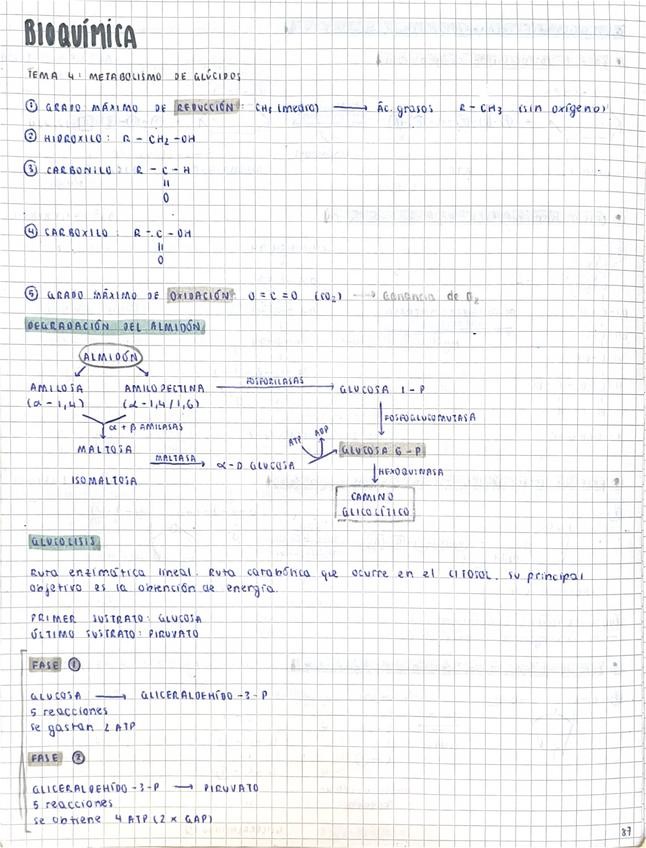 BIOQUÍMICA
TEMA 4: METABOLISMO DE GLÚCIDOS
① GRADO MÁXIMO DE REDUCCIÓN: CH₃ (medio) → Ác. grasos R - CH₃ (sin oxígeno)
② HIDROXILO: R - CH₂ - OH
③ CARBONILO: R - C - H
=
O
④ CARBOXILO: R - C - OH
=
O
⑤ GRADO MÁXIMO DE OXIDACIÓN: O = C = O (CO₂) → Ganancia de O₂
DEGRADACIÓN DEL ALMIDÓN
ALMIDÓN
AMILOSA AMILOPECTINA FOSFORILASAS → GLUCOSA 1-P
(α-1,4) (α-1,4/1,6)
FOSFOGLUCOMUTASA
α + β AMILASAS
ATP ADP
MALTOSA MALTASA → α-D GLUCOSA GLUCOSA 6-P
ISOMALTOSA
HEXOQUINASA
CAMINO
GLICOLÍTICO
GLUCOLISIS
Ruta enzimática lineal. Ruta catabólica que ocurre en el CITOSOL. Su principal
objetivo es la obtención de energía.
PRIMER SUSTRATO: GLUCOSA
ÚLTIMO SUSTRATO: PIRUVATO
FASE ①
GLUCOSA → GLICERALDEHÍDO-3-P
5 reacciones
se gastan 2 ATP
FASE ②
GLICERALDEHÍDO-3-P → PIRUVATO
5 reacciones
se obtiene 4 ATP (2 x GAP)
87